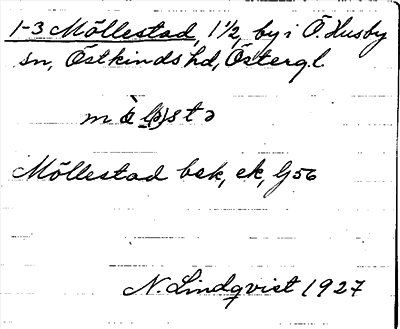 1-3 Möllestad, 1 1/2, by i Ö. Husby
sn, Östkinds hd, Östergl.
Möllestad bsk, ek, G56
N. Lindqvist 1927